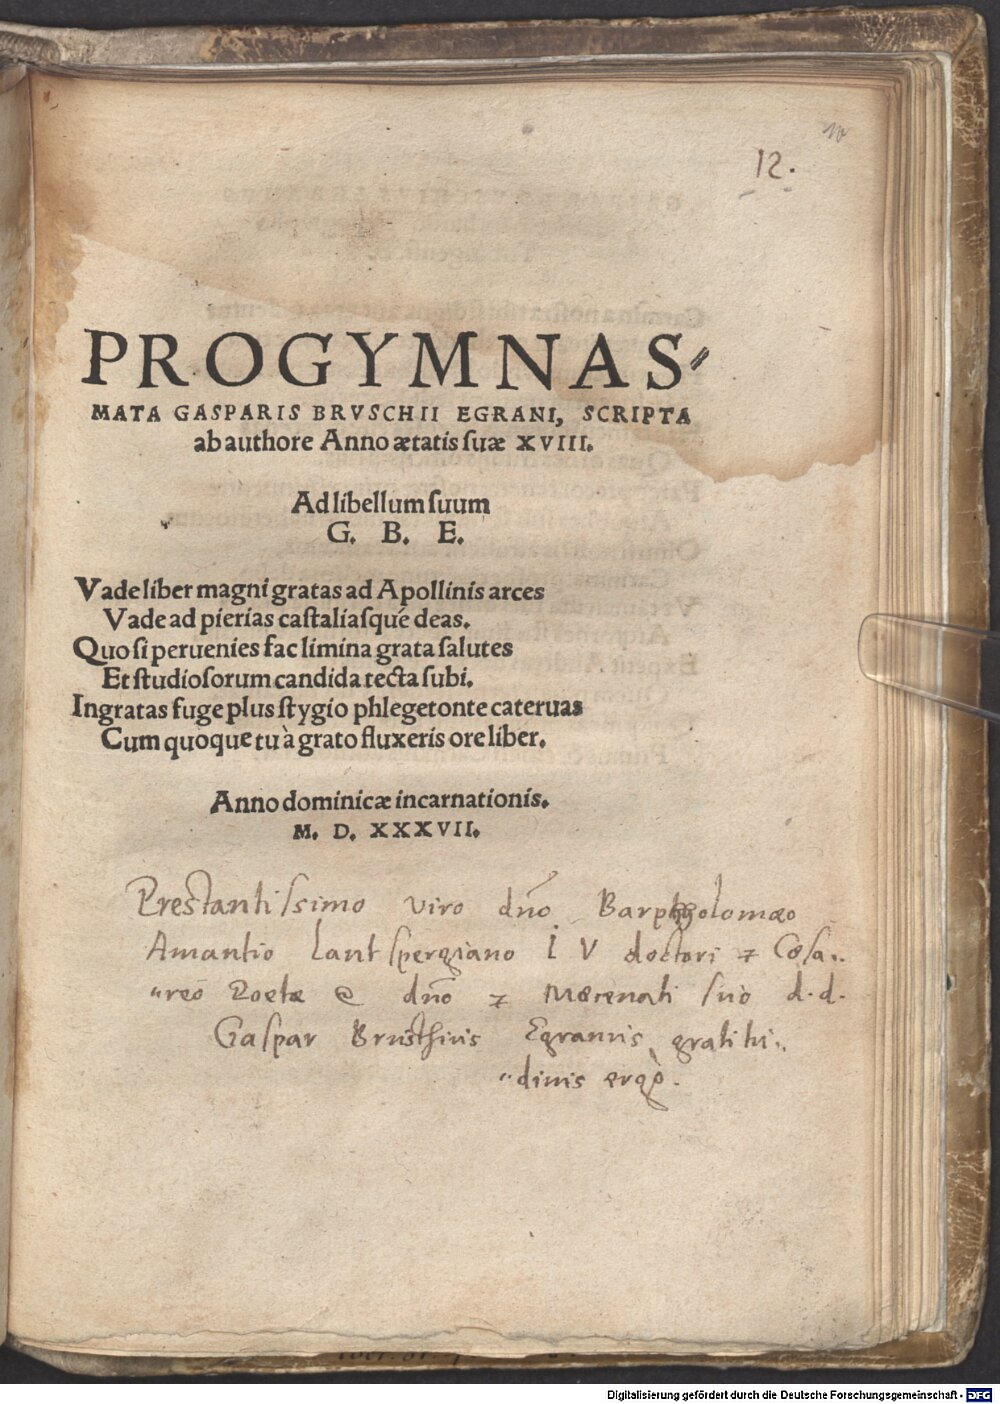 12.
PROGYMNAS⸗
MATA GASPARIS BRVSCHII EGRANI, SCRIPTA
ab authore Anno ætatis ſuæ XVIII.
Ad libellum ſuum
G. B. E.
Vade liber magni gratas ad Apollinis arces
Vade ad pierias caſtaliaſqué deas.
Quo ſi peruenies fac limina grata ſalutes
Et ſtudioſorum candida tecta ſubi.
Ingratas fuge plus ſtygio phlegetonte cateruas
Cum quoque tu à grato fluxeris ore liber.
Anno dominicæ incarnationis.
M. D. XXXVII.
Prestantiſsimo viro dño Bartholomæo
Amantio Lantſpergiano I V doctori ⁊ Cæſa⸗
reo Poetæ dño ⁊ Mæcenati ſuo d. d.
Gaſpar Bruschius Egranus gratitu⸗
dinis ergò.
Digitalisierung gefördert durch die Deutsche Forschungsgemeinschaft - DFG